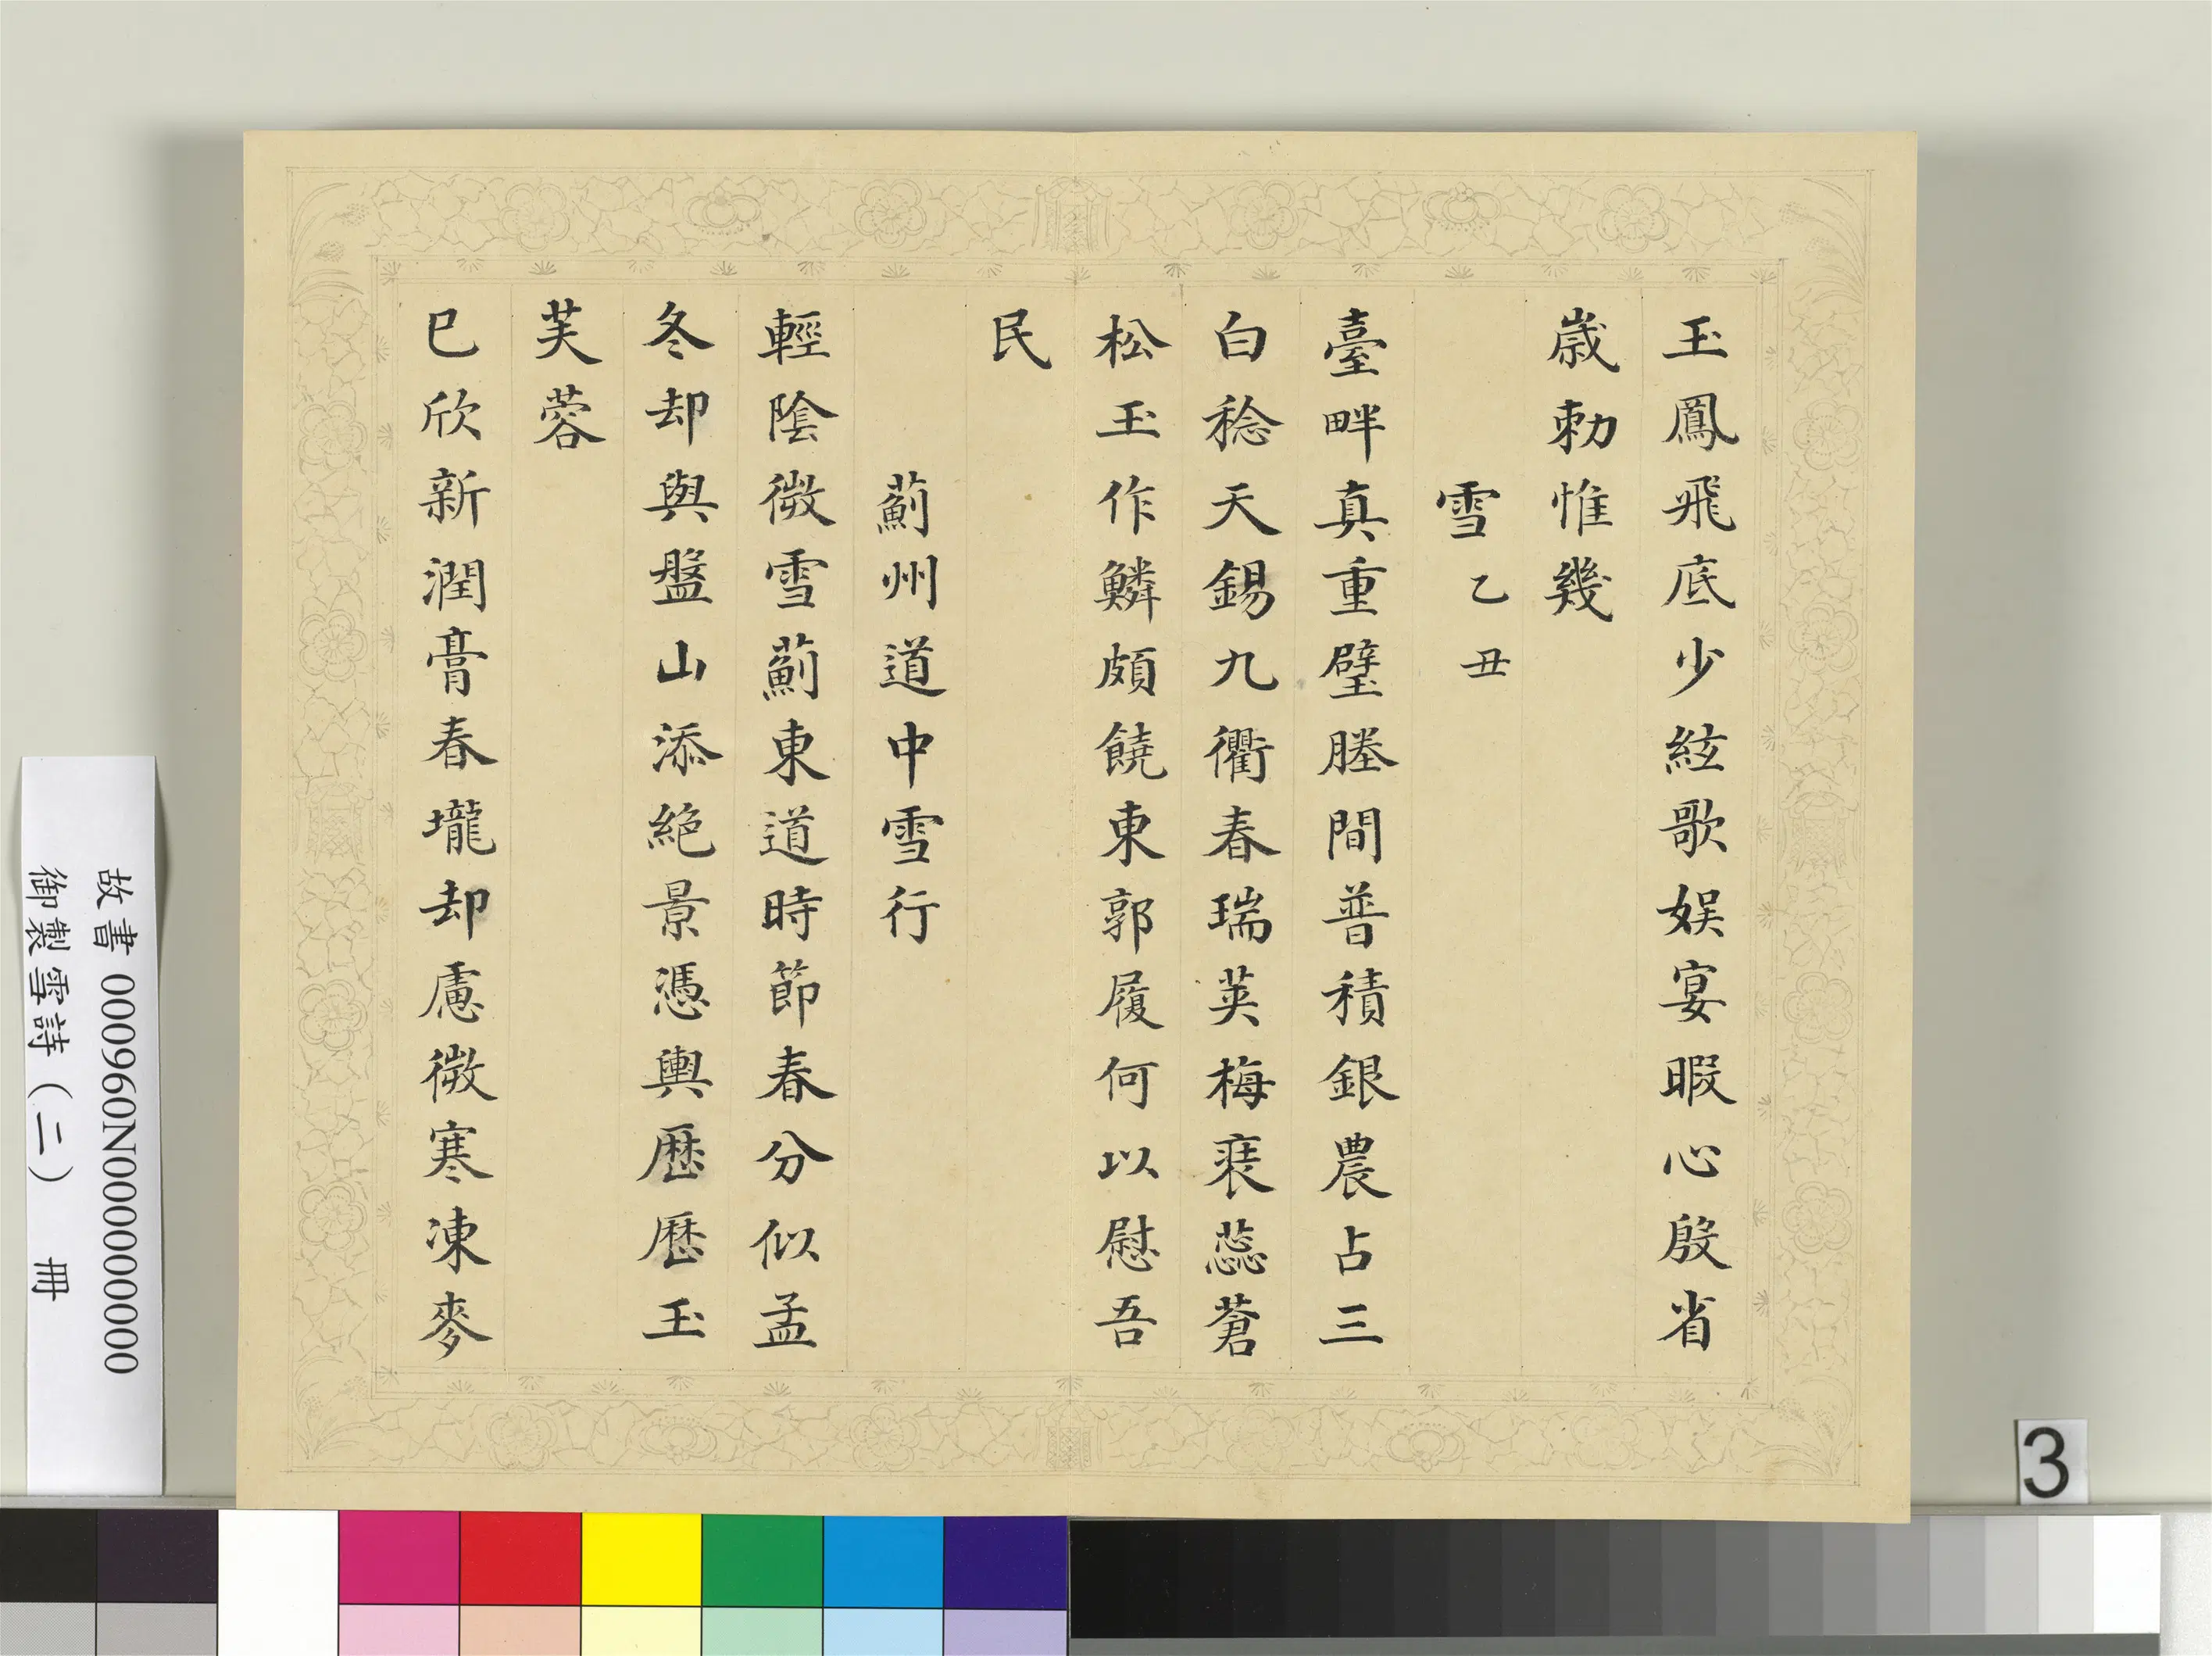 玉鳳飛底少絃歌娱宴暇心殷省
歲勅惟幾
雪乙丑
臺畔真重璧塍間普積銀農占三
白稔天錫九衢春瑞莢梅裴蕊蒼
松玉作鱗頗饒東郭履何以慰吾
民
薊州道中雪行
輕陰微雪薊東道時節春分似孟
冬却與盤山添絶景憑輿歷歷玉
芙蓉
已欣新潤膏春壠却慮微寒凍麥
故書 000960N000000000
御製雪詩（二） 冊
3